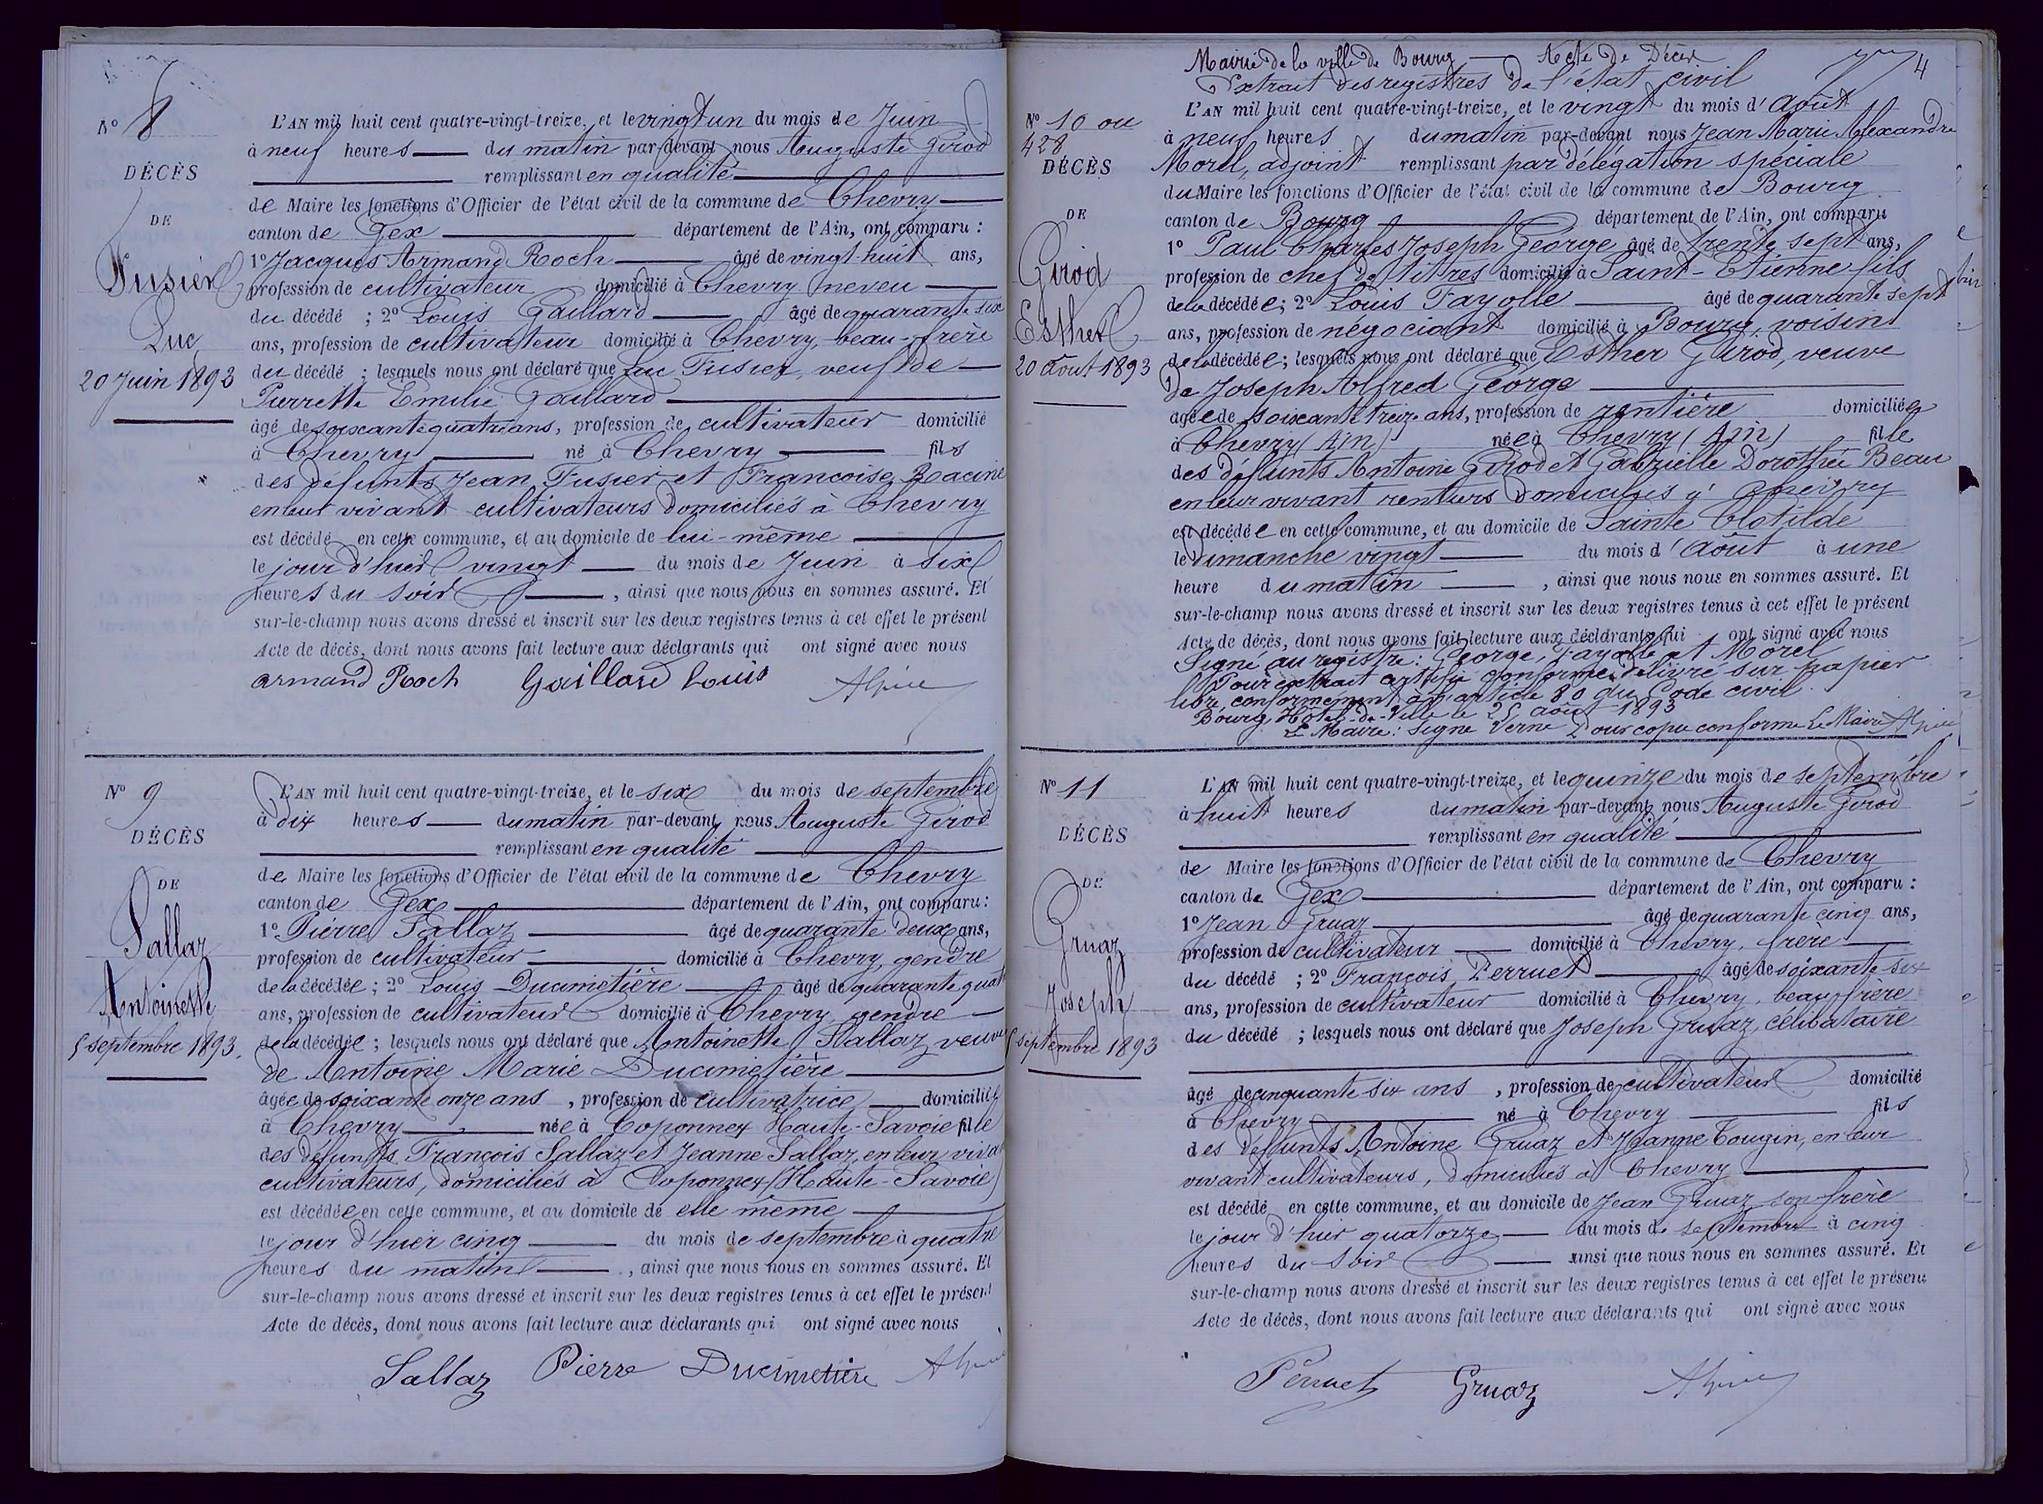 N° 8
DÉCÈS
DE
Fusier
Luc
20 Juin 1893
L'AN mil huit cent quatre-vingt-treize, et le vingt un du mois de Juin
à neuf heures du matin par-devant nous Auguste Girod
remplissant en qualité
de Maire les fonctions d'Officier de l'état civil de la commune de Chevry
canton de Gex département de l'Ain, ont comparu :
1° Jacques Armand Roch âgé de vingt-huit ans,
profession de cultivateur domicilié à Chevry neveu
du décédé ; 2° Louis Gaillard âgé de quarante six
ans, profession de cultivateur domicilié à Chevry, beau-frère
du décédé ; lesquels nous ont déclaré que Luc Fusier, veuf de
Pierrette Emilie Gaillard
âgé de soixante quatre ans, profession de cultivateur domicilié
à Chevry né à Chevry fils
des défunts Jean Fusier et Françoise Racine
en leur vivant cultivateurs domiciliés à Chevry
est décédé en cette commune, et au domicile de lui-même
le jour d'hier vingt du mois de Juin à six
heures du soir , ainsi que nous nous en sommes assuré. Et
sur-le-champ nous avons dressé et inscrit sur les deux registres tenus à cet effet le présent
Acte de décès, dont nous avons fait lecture aux déclarants qui ont signé avec nous
Armand Roch Gaillard Louis
N° 9
DÉCÈS
DE
Sallaz
Antoinette
5 septembre 1893.
L'AN mil huit cent quatre-vingt-treize, et le six du mois de septembre
à dix heures du matin par-devant nous Auguste Girod
remplissant en qualité
de Maire les fonctions d'Officier de l'état civil de la commune de Chevry
canton de Gex département de l'Ain, ont comparu :
1° Pierre Sallaz âgé de quarante deux ans,
profession de cultivateur domicilié à Chevry, gendre
de la décédée ; 2° Louis Ducimetière âgé de quarante quat
ans, profession de cultivateur domicilié à Chevry gendre
de la décédée ; lesquels nous ont déclaré que Antoinette Sallaz, veuve
de Antoine Marie Ducimetière
âgée de soixante onze ans , profession de cultivatrice domiciliée
à Chevry née à Coponnex Haute-Savoie fille
des défunts François Sallaz et Jeanne Sallaz, en leur viva
cultivateurs, domiciliés à Coponnex (Haute-Savoie)
est décédée en cette commune, et au domicile de elle même
le jour d'hier cinq du mois de septembre à quatre
heures du matin , ainsi que nous nous en sommes assuré. Et
sur-le-champ nous avons dressé et inscrit sur les deux registres tenus à cet effet le présent
Acte de décès, dont nous avons fait lecture aux déclarants qui ont signé avec nous
Sallaz Pierre Ducimetière
4
Mairie de la ville de Bourg Acte de Décès
Extrait des registres de l'état civil
N° 10 ou
428
DÉCÈS
DE
Girod
Esther
20 août 1893
L'AN mil huit cent quatre-vingt-treize, et le vingt du mois d'Août
à neuf heures du matin par-devant nous Jean Marie Alexandre
Morel, adjoint remplissant par délégation spéciale
du Maire les fonctions d'Officier de l'état civil de la commune de Bourg
canton de Bourg département de l'Ain, ont comparu
1° Paul Charles Joseph George âgé de trente sept ans,
profession de chef de titres domicilié à Saint-Etienne fils
de la décédée ; 2° Louis Fayolle âgé de quarante sept
ans, profession de négociant domicilié à Bourg, voisin
de la décédée ; lesquels nous ont déclaré que Esther Girod, veuve
de Joseph Alfred George
âgée de soixante treize ans, profession de rentière domiciliée
à Chevry (Ain) née à Chevry (Ain) fille
des défunts Antoine Girod et Gabrielle Dorothée Beau
en leur vivant rentiers domiciliés à Chevry
est décédée en cette commune, et au domicile de Sainte Clotilde
le dimanche vingt du mois d'Août à une
heure du matin , ainsi que nous nous en sommes assuré. Et
sur-le-champ nous avons dressé et inscrit sur les deux registres tenus à cet effet le présent
Acte de décès, dont nous avons fait lecture aux déclarants qui ont signé avec nous
Signé au registre : George, Fayolle et Morel
Pour extrait certifié conforme délivré sur papier
libre conformément à l'article 80 du Code civil.
Bourg, Hôtel-de-Ville le 25 août 1893
Le Maire : signé Verne Pour copie conforme Le Maire
N° 11
DÉCÈS
DE
Gruaz
Joseph
septembre 1893
L'AN mil huit cent quatre-vingt-treize, et le quinze du mois de septembre
à huit heures du matin par-devant nous Auguste Girod
remplissant en qualité
de Maire les fonctions d'Officier de l'état civil de la commune de Chevry
canton de Gex département de l'Ain, ont comparu :
1° Jean Gruaz âgé de quarante cinq ans,
profession de cultivateur domicilié à Chevry, frère
du décédé ; 2° François Perruet âgé de soixante six
ans, profession de cultivateur domicilié à Chevry, beau-frère
du décédé ; lesquels nous ont déclaré que Joseph Gruaz, célibataire
âgé de cinquante six ans , profession de cultivateur domicilié
à Chevry né à Chevry fils
des défunts Antoine Gruaz et Jeanne Tougin, en leur
vivant cultivateurs, domiciliés à Chevry
est décédé en cette commune, et au domicile de Jean Gruaz son frère
le jour d'hier quatorze du mois de septembre à cinq
heures du soir ainsi que nous nous en sommes assuré. Et
sur-le-champ nous avons dressé et inscrit sur les deux registres tenus à cet effet le présent
Acte de décès, dont nous avons fait lecture aux déclarants qui ont signé avec nous
Perruet Gruaz